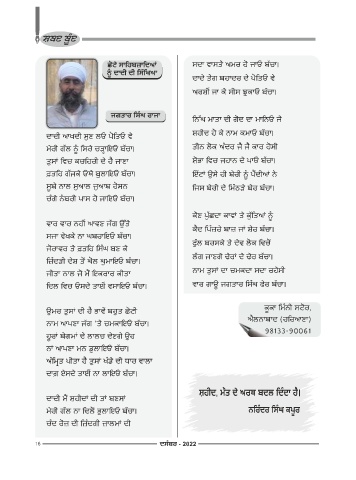 ਸ਼ਬਦ ਬੂੰਦ
ਛੋਟੇ ਸਾਹਿਬਜ਼ਾਦਿਆਂ
ਨੂੰ ਦਾਦੀ ਦੀ ਸਿੱਖਿਆ
ਜਗਤਾਰ ਸਿੰਘ ਰਾਜਾ
ਦਾਦੀ ਆਖਦੀ ਸੁਣ ਲਓ ਪੋਤਿਓ ਵੇ
ਮੇਰੀ ਗੱਲ ਨੂੰ ਸਿਰੇ ਚੜ੍ਹਾਇਓ ਬੱਚਾ।
ਤੁਸਾਂ ਵਿਚ ਕਚਹਿਰੀ ਦੇ ਹੈ ਜਾਣਾ
ਫ਼ਤਹਿ ਗੱਜਕੇ ਓਥੇ ਬੁਲਾਇਓ ਬੱਚਾ।
ਸੂਬੇ ਨਾਲ ਸੁਆਲ ਜੁਆਬ ਹੋਸਨ
ਚੰਗੇ ਨੰਬਰੀਂ ਪਾਸ ਹੋ ਜਾਇਓ ਬੱਚਾ।
ਵਾਰ ਵਾਰ ਨਹੀਂ ਆਵਣਾ ਜੱਗ ਉੱਤੇ
ਸਜਾ ਵੇਖਕੇ ਨਾ ਘਬਰਾਇਓ ਬੱਚਾ।
ਜੋਰਾਵਰ ਤੇ ਫ਼ਤਹਿ ਸਿੰਘ ਬਣ ਕੇ
ਜਿੰਦੜੀ ਦੇਸ਼ ਤੋਂ ਘੋਲ ਘੁਮਾਇਓ ਬੱਚਾ।
ਜੀਤਾ ਨਾਲ ਜੋ ਮੈਂ ਇਕਰਾਰ ਕੀਤਾ
ਦਿਲ ਵਿਚ ਓਸਦੇ ਤਾਈਂ ਵਸਾਇਓ ਬੱਚਾ।
ਉਮਰ ਤੁਸਾਂ ਦੀ ਹੈ ਭਾਵੇਂ ਬਹੁਤ ਛੋਟੀ
ਨਾਮ ਆਪਣਾ ਜੱਗ 'ਤੇ ਚਮਕਾਇਓ ਬੱਚਾ।
ਹੂਰਾਂ ਬੇਗਮਾਂ ਦੇ ਲਾਲਚ ਦੇਣਗੇ ਉਹ
ਨਾ ਆਪਣਾ ਮਨ ਡੁਲਾਇਓ ਬੱਚਾ।
ਅੰਮ੍ਰਿਤ ਪੀਤਾ ਹੈ ਤੁਸਾਂ ਖੰਡੇ ਦੀ ਧਾਰ ਵਾਲਾ
ਦਾਗ਼ ਏਸਦੇ ਤਾਈਂ ਨਾ ਲਾਇਓ ਬੱਚਾ।
ਦਾਦੀ ਮੈਂ ਸ਼ਹੀਦਾਂ ਦੀ ਤਾਂ ਬਣਸਾਂ
ਮੇਰੀ ਗੱਲ ਨਾ ਦਿਲੋਂ ਭੁਲਾਇਓ ਬੱਚਾ।
ਚੰਦ ਰੋਜ਼ ਦੀ ਜ਼ਿੰਦਗੀ ਜ਼ਾਲਮਾਂ ਦੀ
ਸਦਾ ਵਾਸਤੇ ਅਮਰ ਹੋ ਜਾਓ ਬੱਚਾ।
ਦਾਦੇ ਤੇਗ ਬਹਾਦਰ ਦੇ ਪੋਤਿਓ ਵੇ
ਅਰਸ਼ੀਂ ਜਾ ਕੇ ਸੀਸ ਝੁਕਾਓ ਬੱਚਾ।
ਨਿੱਘ ਮਾਤਾ ਦੀ ਗੋਦ ਦਾ ਮਾਨਿਓ ਜੋ
ਸ਼ਹੀਦ ਹੋ ਕੇ ਨਾਮ ਕਮਾਓ ਬੱਚਾ।
ਤੀਨ ਲੋਕ ਅੰਦਰ ਜੈ ਜੈ ਕਾਰ ਹੋਸੀ
ਸ਼ੋਭਾ ਵਿਚ ਜਹਾਨ ਦੇ ਪਾਓ ਬੱਚਾ।
ਇੱਟਾਂ ਉਸੇ ਹੀ ਬੇਰੀ ਨੂੰ ਪੈਂਦੀਆਂ ਨੇ
ਜਿਸ ਬੇਰੀ ਦੇ ਮਿੱਠੜੇ ਬੇਰ ਬੱਚਾ।
ਕੌਣ ਪੁੱਛਦਾ ਕਾਵਾਂ ਤੇ ਕੁੱਤਿਆਂ ਨੂੰ
ਕੈਦ ਪਿੰਜਰੇ ਬਾਜ਼ ਜਾਂ ਸ਼ੇਰ ਬੱਚਾ।
ਫੁੱਲ ਬਰਸਕੇ ਤੇ ਦੇਵ ਲੋਕ ਵਿਚੋਂ
ਲੱਗ ਜਾਣਗੇ ਢੇਰਾਂ ਦੇ ਢੇਰ ਬੱਚਾ।
ਨਾਮ ਤੁਸਾਂ ਦਾ ਚਮਕਦਾ ਸਦਾ ਰਹੇਸੀ
ਵਾਰ ਗਾਊ ਜਗਤਾਰ ਸਿੰਘ ਫੇਰ ਬੱਚਾ।
ਕੂਕਾ ਮਿੰਨੀ ਸਟੋਰ,
ਐਲਨਾਬਾਦ (ਹਰਿਆਣਾ)
98133-90061
ਸ਼ਹੀਦ, ਮੌਤ ਦੇ ਅਰਥ ਬਦਲ ਦਿੰਦਾ ਹੈ।
ਨਰਿੰਦਰ ਸਿੰਘ ਕਪੂਰ
16
ਦਸੰਬਰ - 2022